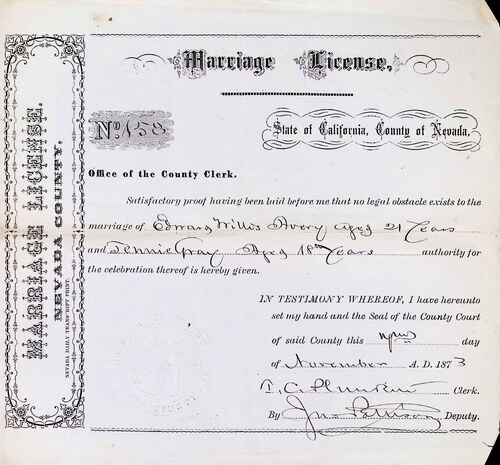 Marriage License.
No. 158
State of California, County of Nevada.
Office of the County Clerk.
Satisfactory proof having been laid before me that no legal obstacle exists to the
marriage of Edward Willis Avery aged 21 Years
and Jennie Gray Aged 18 Years authority for
the celebration thereof is hereby given.
IN TESTIMONY WHEREOF, I have hereunto
set my hand and the Seal of the County Court
of said County this day
of November A. D. 1873
T. C. Plunkett Clerk.
By Jno Pattison Deputy.
MARRIAGE LICENSE.
NEVADA COUNTY.
NEVADA DAILY TRANSCRIPT PRINT.